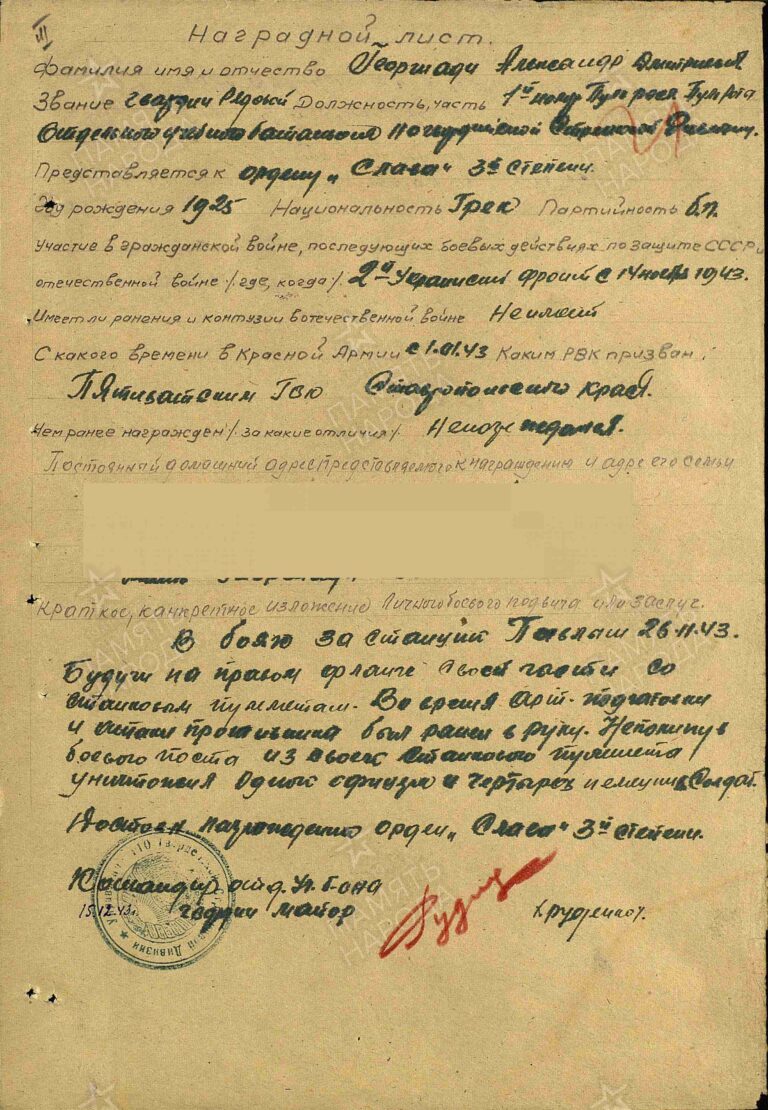 III
Наградной лист.
Фамилия имя и отчество Георгиади Александр Дмитриевич
Звание гвардии Рядовой Должность, часть 1й номер Пульрота
Отдельного учебного батальона гвардейской Стрелковой Дивизии.
Представляется к ордену „Слава“ 3й степени.
Год рождения 1925 Национальность Грек Партийность б.п.
Участие в гражданской войне, последующих боевых действиях по защите СССР и
отечественной войне /где, когда/. 2й Украинский фронт с 14 ноября 1943.
Имеет ли ранения и контузии в отечественной войне Не имеет
С какого времени в Красной Армии с 1.01.43 Каким РВК призван.
ГВК Ставропольского края.
Чем ранее награжден /. за какие отличия /. Не награждался.
Постоянный домашний адрес представляемого к награждению и адрес его семьи
Краткое, канкретное изложение личного боевого подвига или заслуг.
В бою за станцию 26.11.43.
Будучи на правом фланге своей части со
станковым пулеметам. Во время арт. подготовки
и атаки противника был ранен в руку. Непокинув
боевого поста из своего станкового пулемета
уничтожил одного офицера и четырех немецких Солдат.
Достоин награждению орден „Слава“ 3й степени.
Командир отд. Уч. б-она
15.12.43г. гвардии майор /Руденко/.